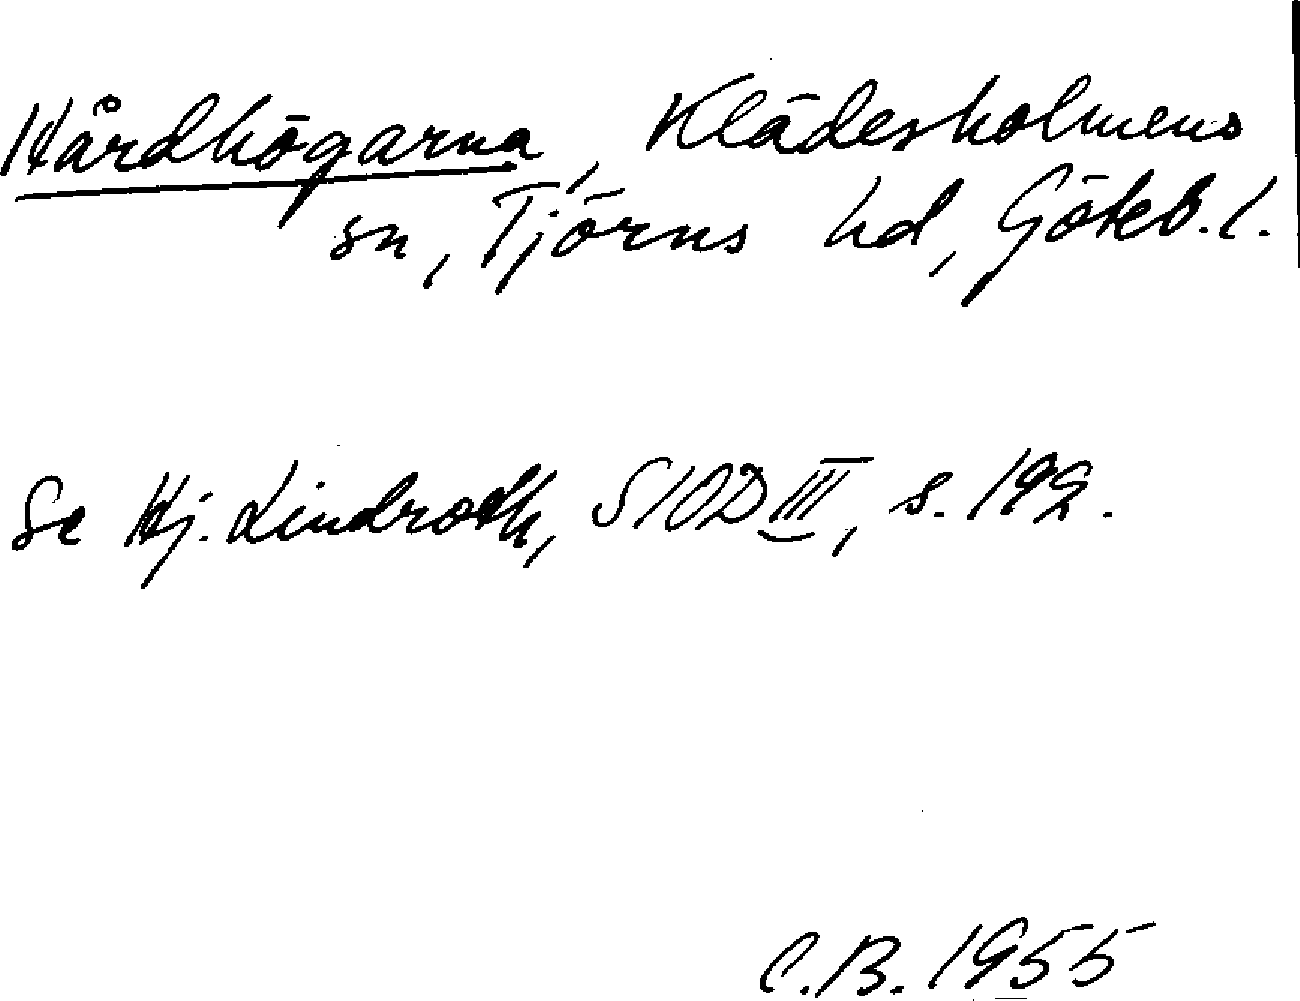 Hårdhögarna, Klädesholmens
sn, Tjörns hd, Göteb. l.
Se Hj. Lindroth, SIOD III, s. 192.
C.B. 1955